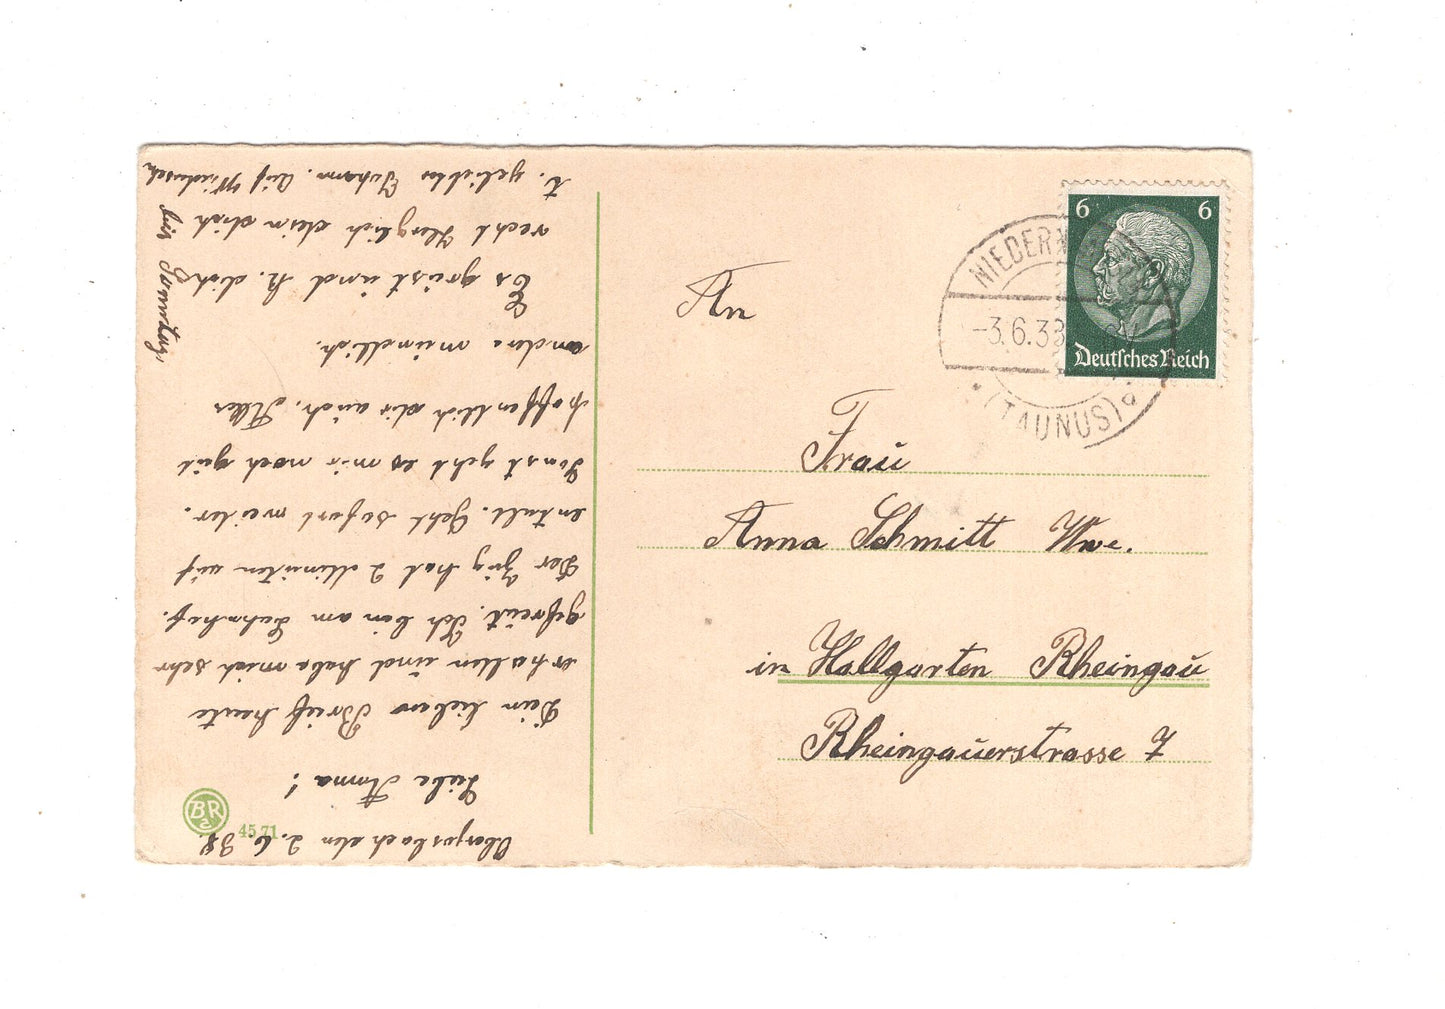 6 6
Deutsches Reich
NIEDER
-3.6.38
(TAUNUS)
An
Frau
Anna Schmitt Wwe.
in Hallgarten Rheingau
Rheingauerstrasse 7
den 2.6.38.
Liebe Anna!
Dein lieber Brief heute
erhalten und habe mich sehr
gefreut. Ich bin am Bahnhof.
Der Zug hat 2 Minuten auf
enthalt. Geht sofort weiter.
Sonst geht es mir noch gut
hoffentlich dir auch. Alles
andere mündlich.
Es grüst und k. dich
recht herzlich dein dich
l. geliebter Johann. Auf Wiederseh
bis Sonntag,
BR
4571